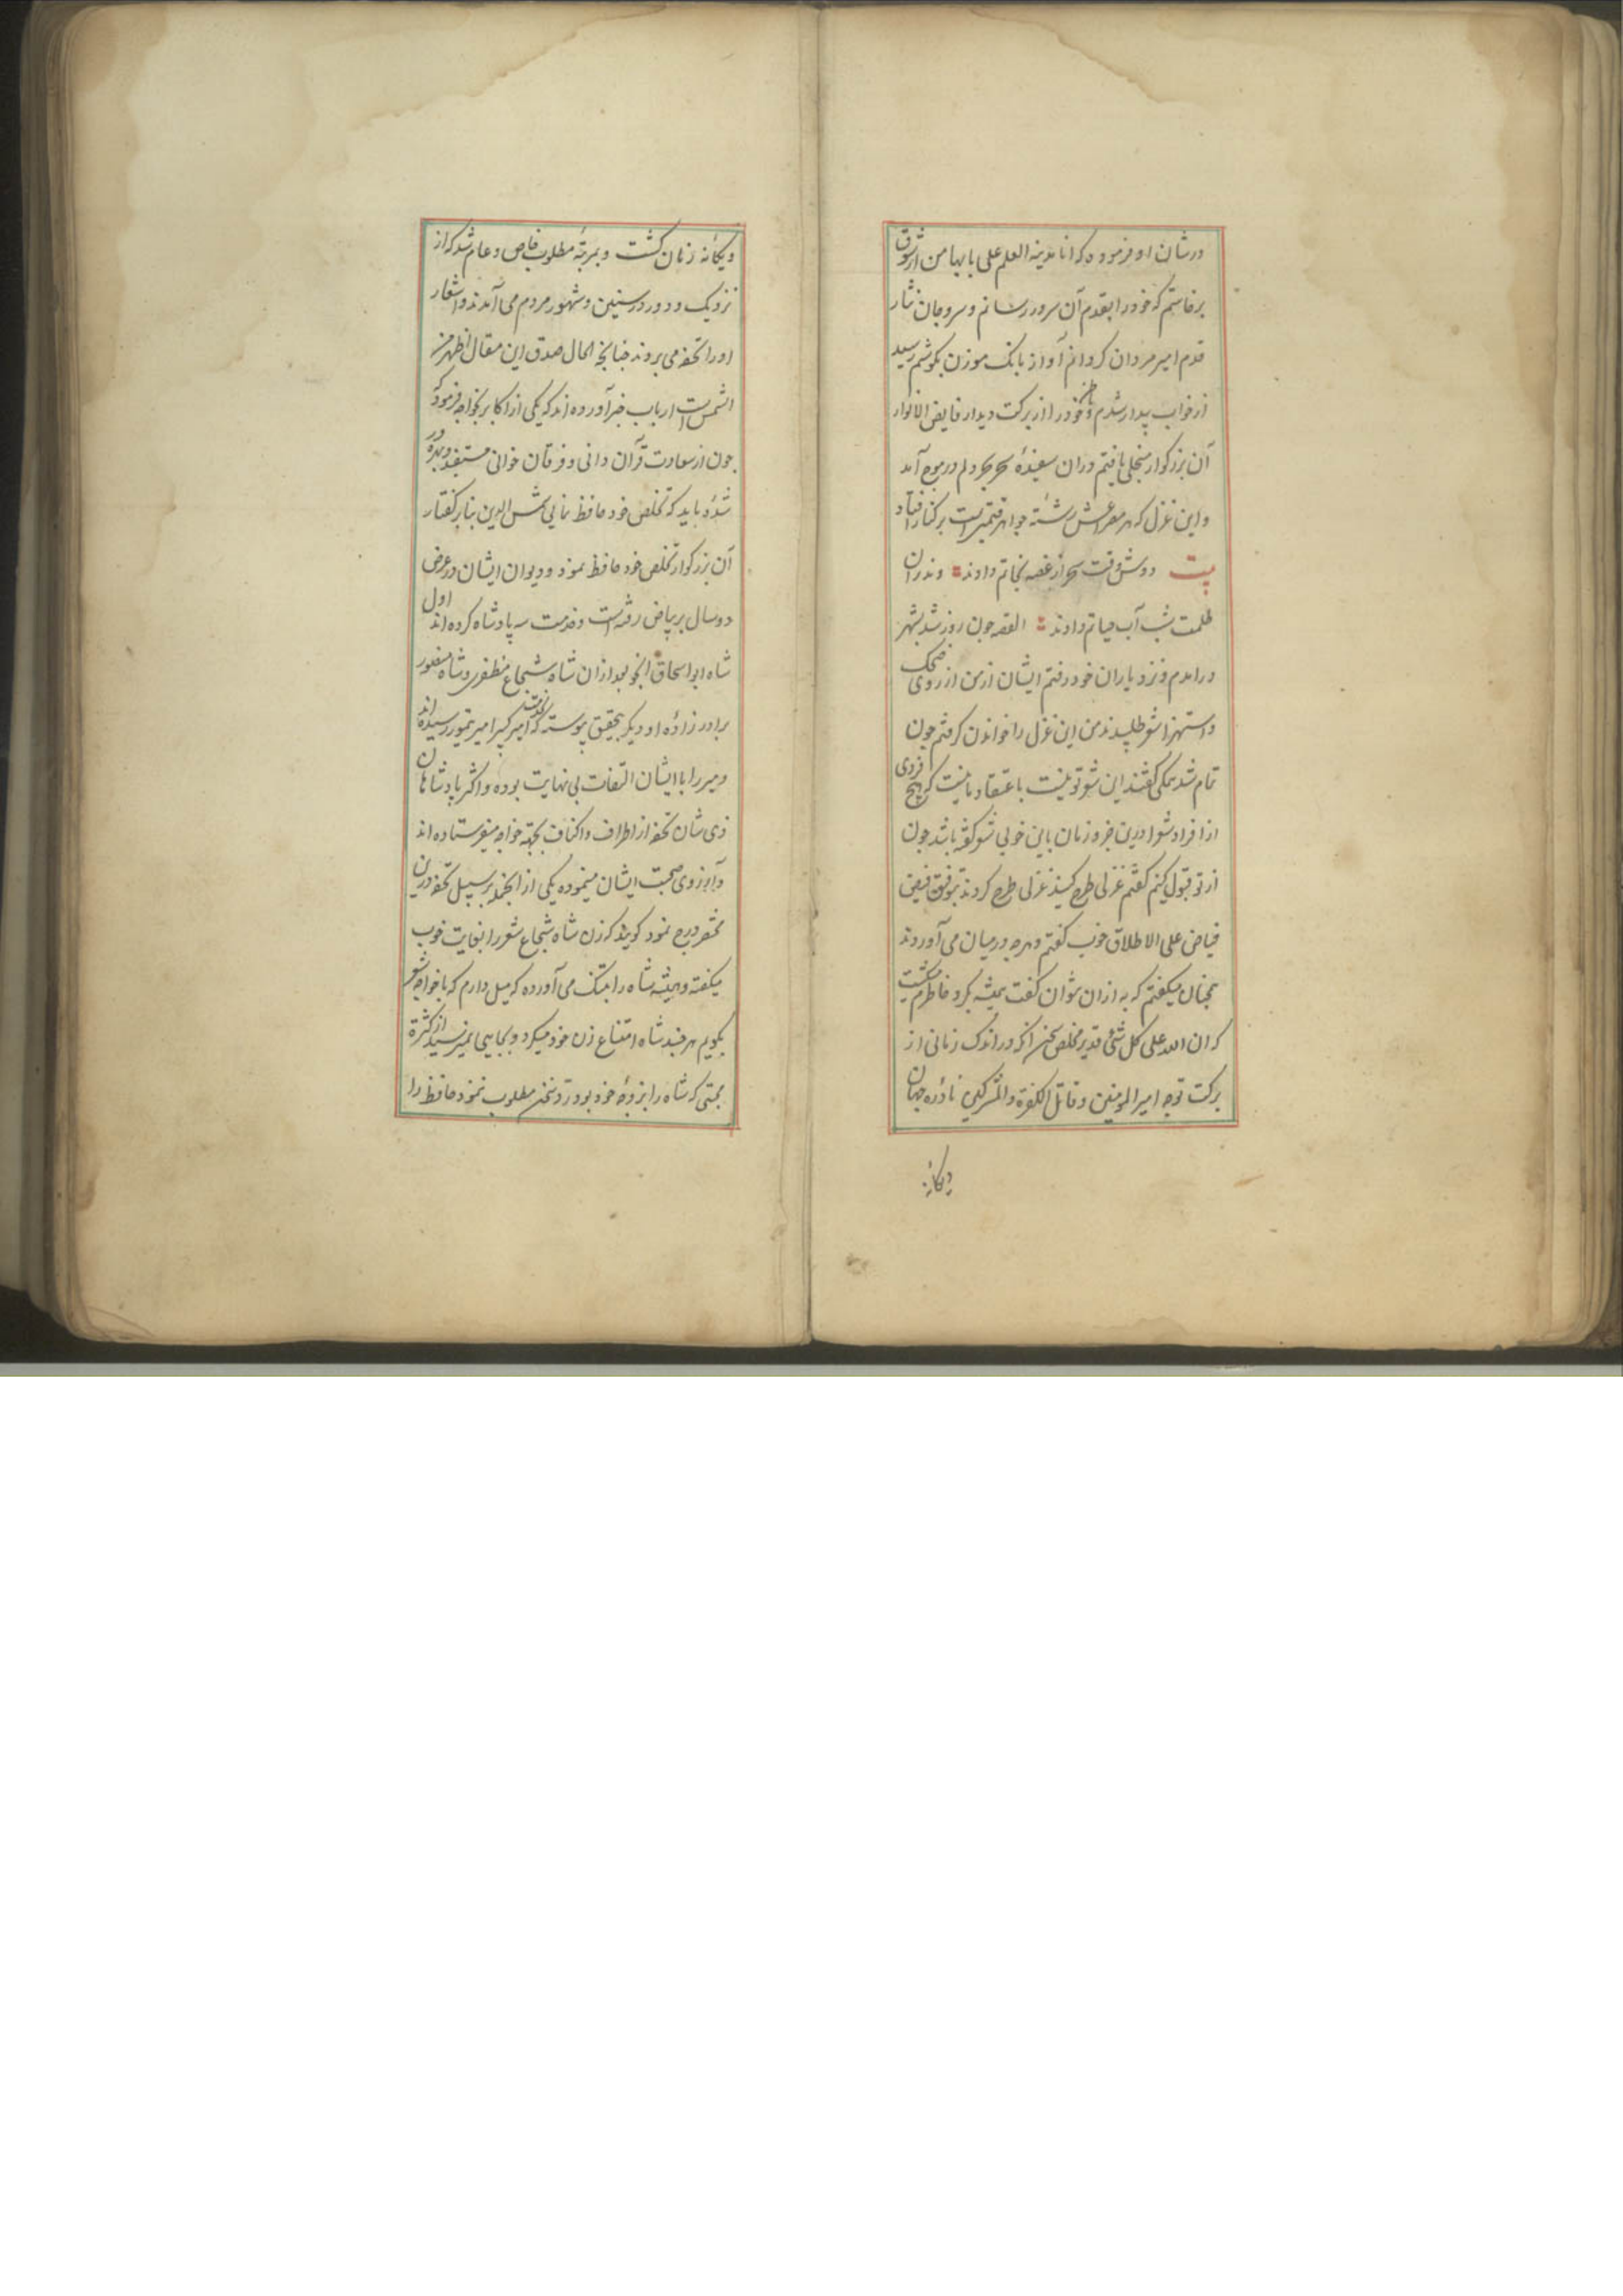 درشان او فرموده که انا مدینة العلم علی بابها من از شوق
برخاستم که خود را بقدم آن سرور رسانم و سر و جان نثار
قدم امیر مردان کردانم آواز بانک موزن بکوشم رسید
از خواب بیدار شدم و خود را از برکت دیدار فایض الانوار
آن بزرکوار منجلی یافتم دران سفینهٔ سحر بحر دلم در موج آمد
و این غزل که هر مصراعش رشتهٔ جواهر قیمتیست برکنار افتاد
بیت دوش وقت سحر از غصه نجاتم دادند وندران
ظلمت شب آب حیاتم دادند القصه جون روز شد بشهر
درامدم و نزد یاران خود رفتم ایشان از من از روی ضحک
و استهزا شعر طلبیدند من این غزل را خواندن کرفتم جون
تمام شد همکی کفتند این شعر تو نیست باعتقاد ما نیست که هیچ فردی
از افراد شعرا درین جزو زمان باین خوبی شعر کفته باشد جون
از تو قبول کنیم کفتم غزلی طرح کنید غزلی طرح کردند بتوفیق فیض
فیاض علی الاطلاق خوب کفتم و هرچه درمیان می آوردند
همجنان میکفتم که به ازان نتوان کفت همیشه بکرد خاطرم میکشت
که ان الله علی کل شئ قدیر مخلص سخن آنکه در اندک زمانی از
برکت توجه امیر المومنین و قاتل الکفرة والمشرکین نادرهٔ جهان
ویکانه
ویکانهٔ زمان کشت و بمرتبهٔ مطلوب خاص و عام شد که از
نزدیک و دور در سنین و شهور مردم می آمدند و اشعار
او را تحفه می بردند جنانجه الحال صدق این مقال اظهر من
الشمس است ارباب خبر آورده اند که یکی از اکابر بخواجه فرمود که
جون از سعادت قرآن دانی و فرقان خوانی مستفید و بهره ور
شدهٔ باید که تخلص خود حافظ نمایی شمس الدین بنابر کفتار
آن بزرکوار تخلص خود حافظ نمود و دیوان ایشان در عرض
دو سال بر بیاض رفته است و خدمت سه پادشاه کرده اند اول
شاه ابو اسحاق انجو بعد ازان شاه شجاع مظفری و شاه منصور
برادر زادهٔ او و دیکر بتحقیق پیوسته که بخدمت امیر کبیر امیر تیمور رسیده اند
و میر را با ایشان التفات بی نهایت بوده و اکثر پادشاهان
ذی شان تحفه از اطراف و اکناف بجهة خواجه میفرستاده اند
و آرزوی صحبت ایشان مینموده یکی از آنجمله بر سبیل تحفه درین
مختصر درج نمود کویند که زن شاه شجاع شعر را بغایت خوب
میکفته و همیشه شاه را بتنک می آورده که میل دارم که با خواجه شعر
بکویم هر جند شاه امتناع زن خود میکرد و بجایی نمیرسید از کثرة
محبتی که شاه را بزوجهٔ خود بود رد سخن مطلوب ننمود حافظ را